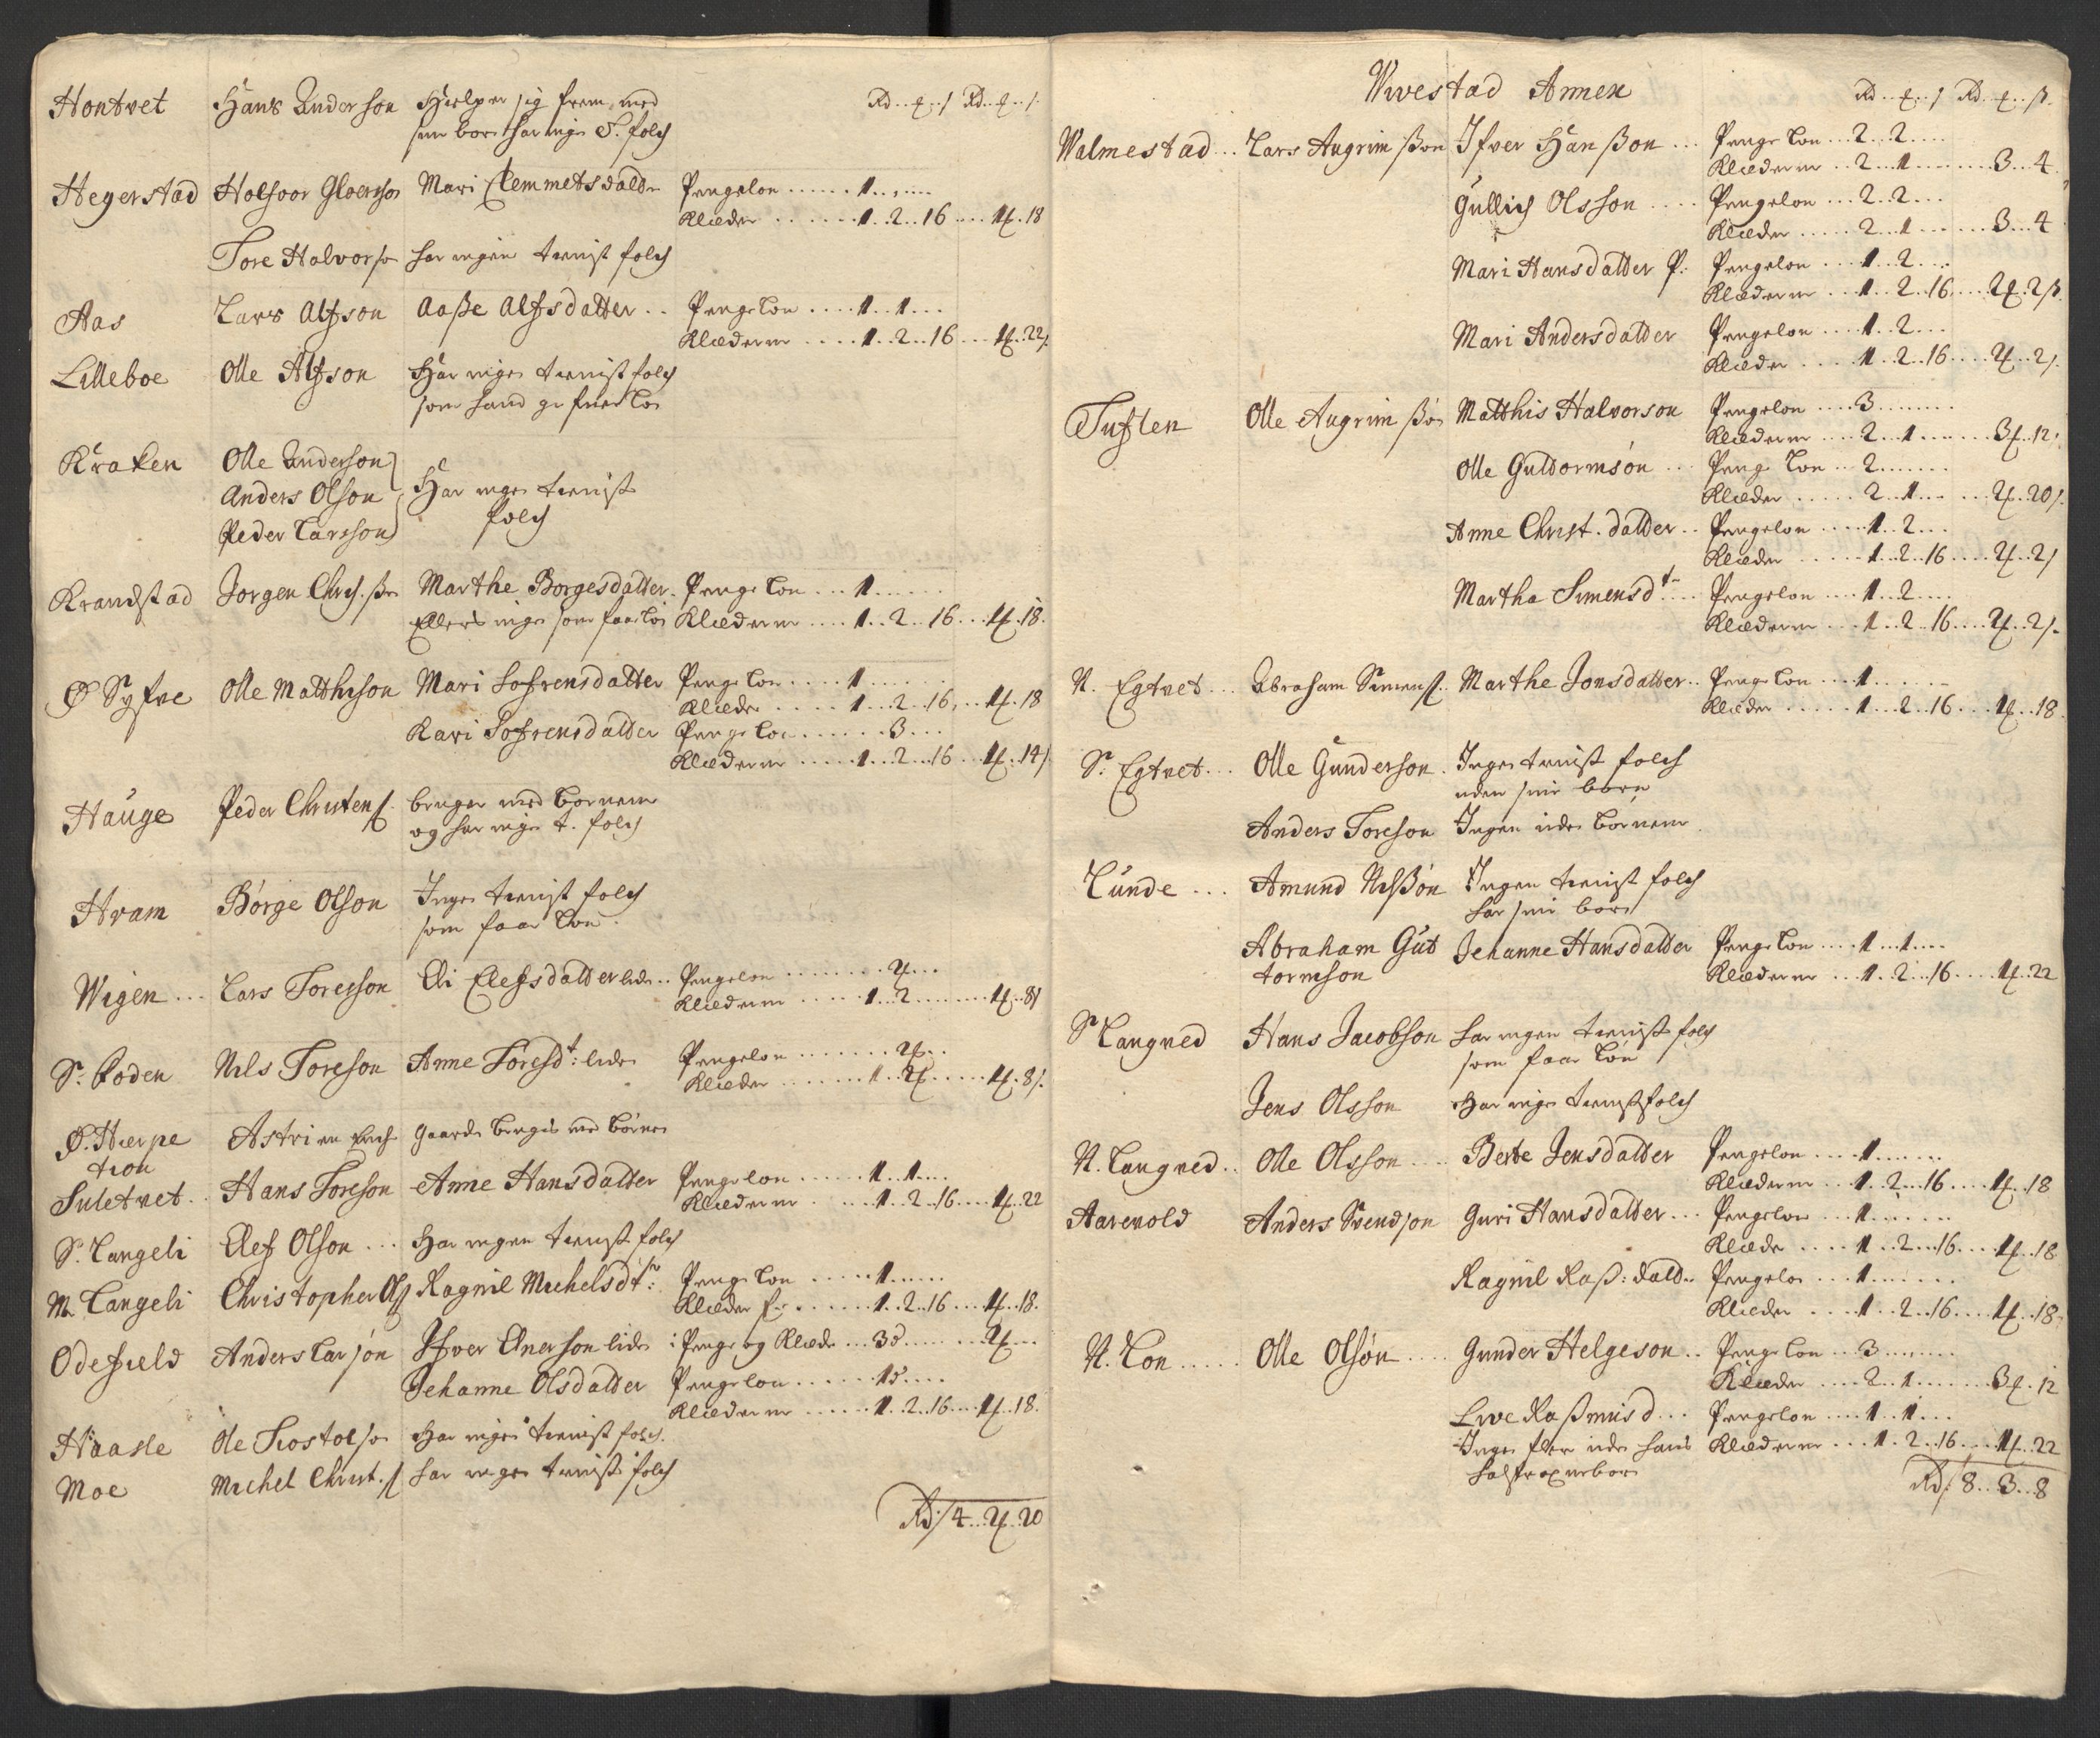 Hontvet Hans Anderson Hielper sig frem med Rd..¢..s Rd..¢..s
sine børn har ingen T. folch
Hegerstad Holfvor Gloersson Mari Clemmetsdatter Pengeløn ...... 1......
Klæder ...... 1..2..16...1¢.18
Tore Halvorson har ingen tienist folch
Aas Lars Alfson Aaße Alfsdatter.. Penge Løn .... 1..1...
Klæderne .... 1..2..16...1¢..22s
Lilleboe Olle Alfson Har ingen tienist folch
som hand gifuer Løn
Kraken Olle Anderson
Anders Olson Har ingen tienist
Peder Larsson folch
Krandstad Jorgen Chris.ßen Marthe Borgesdatter. Penge Løn ... 1......
Ellers ingen som faar Løn Klæderne .... 1..2..16...1¢.18.
Ø Syfve Olle Matthison Mari Sofrensdatter Penge Løn .... 1......
Klæder ..... 1..2..16...1¢.18
Kari Sofrensdatter Penge Løn ...... 3...
Klæderne ..... 1..2..16..1¢.14s
Hauge Peder Christens. bruger med Børnene
og har ingen t. folch
Hvam Børge Olson Ingen tienist folch
som faar Løn.
Wigen ... Lars Toresson Eli Elefsdatter liden.. Pengeløn ........ 2¢...
Klæderne ..... 1..2........1¢..8s
S: Foden Nils Toreson Anne Toresdt: liden Pengeløn ....... 2¢..
Klæder ....... 1..2¢.....1¢.8s.
Ø. Hierpe Astri en Enche Gaarden bruges med Børnene
tion
Suletvet. Hans Toreson Anne Hansdatter Pengeløn ...... 1..1....
Klæderne .... 1..2..16....1¢.22
S. Langeli Elef Olson ... Har ingen tienist folch
M Langeli Christopher Ols Ragnil Michelsdtr: Penge Løn ..... 1......
Klæder ....... 1..2..16....1¢..18.
Odefield Anders Larsøn Ifver Enerson liden i Penge og Klæder ... 3d.......2¢...
Jehanne Olsdatter Pengeløn ...... 1d.....
Klæderne ...... 1..2..16....1¢..18.
Haasle Ole Tiostolson Har ingen tienist folch.
Moe Michel Christ.s har ingen tienist folch
Rd/4...2¢.20
Wivestad Annex Rd..¢..s Rd..¢..ß.
Walmestad... Lars Augrimßon Ifver Hanßon ... Penge Løn ... 2..2....
Klæderne .. 2..1........3...4
Gullich Olsson .... Pengeløn ... 2..2...
Klæder ..... 2..1.......3...4
Mari Hansdatter P: Pengeløn .... 1..2...
Klæderne ... 1..2..16....2¢.2ß.
Mari Andersdatter Pengeløn .... 1..2...
Klæder .... 1..2..16....2¢..2s.
Tuften Olle Augrimßøn Matthis Halvorson Pengeløn ....3........
Klæderne .... 2...1.......3¢..12.
Olle Guldormsøn ... Penge Løn ... 2.......
Klæder ..... 2...1.......2¢.20s.
Anne Christ. datter.. Pengeløn ..... 1..2...
Klæder ..... 1..2..16....2¢..2s
Martha Simensdt.... Pengeløn .... 1..2....
Klæderne ... 1..2..16....2¢..2s.
N. Egtvet... Abraham Simens. Marthe Jonsdatter.. Penge Løn ... 1.......
Klæder ..... 1...2..16....1¢..18.
S: Egtvet... Olle Gunderson. Ingen tienist folch
uden sine børn
Anders Toreson Ingen uden Børnene
Lunde ... Amund Nilßøn Ingen tienist folch
har sine børn
Abraham Gut Jehanne Hansdatter Penge Løn .... 1...1....
tormson Klæderne ... 1..2..16....1¢.22
S Langved Hans Jacobson har ingen tienist folch
som faar Løn
Jens Olsson Har ingen tienistfolch
N. Langved.. Olle Olsson .... Berte Jensdatter Pengeløn .... 1.......
Klæderne ... 1..2..16....1¢..18
Aarevold Anders Svendson Guri Hansdatter... Pengeløn ... 1......
Klæder .... 1...2...16....1¢..18
Ragnil Raß: datt.. Pengeløn ... 1.......
Klæder .... 1..2..16....1¢.18.
N. Løn ..... Olle Olsøn .... Gunder Helgeson.. Penge Løn .. 3........
Klæder .... 2...1.......3¢.12
Live Raßmusd... Pengeløn .... 1..1...
Ingen fler uden hans Klæderne ... 1..2..16....1¢..22
Rd/8...3..8